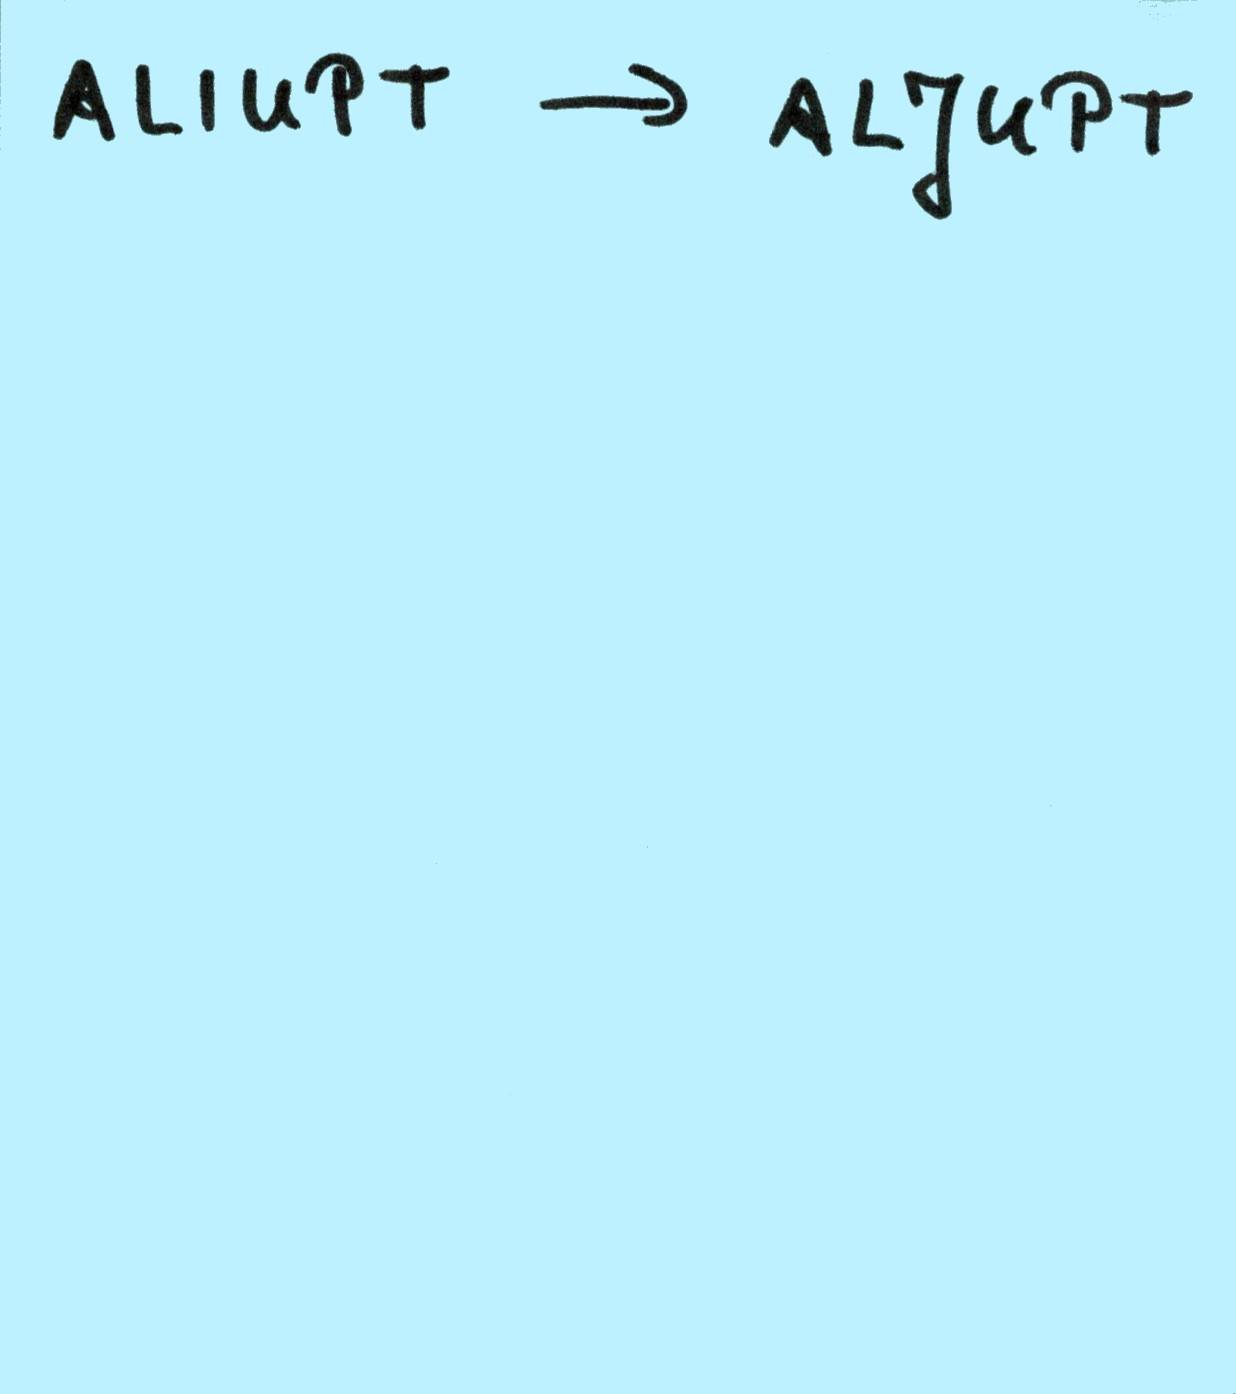 ALIUPT → ALJUPT